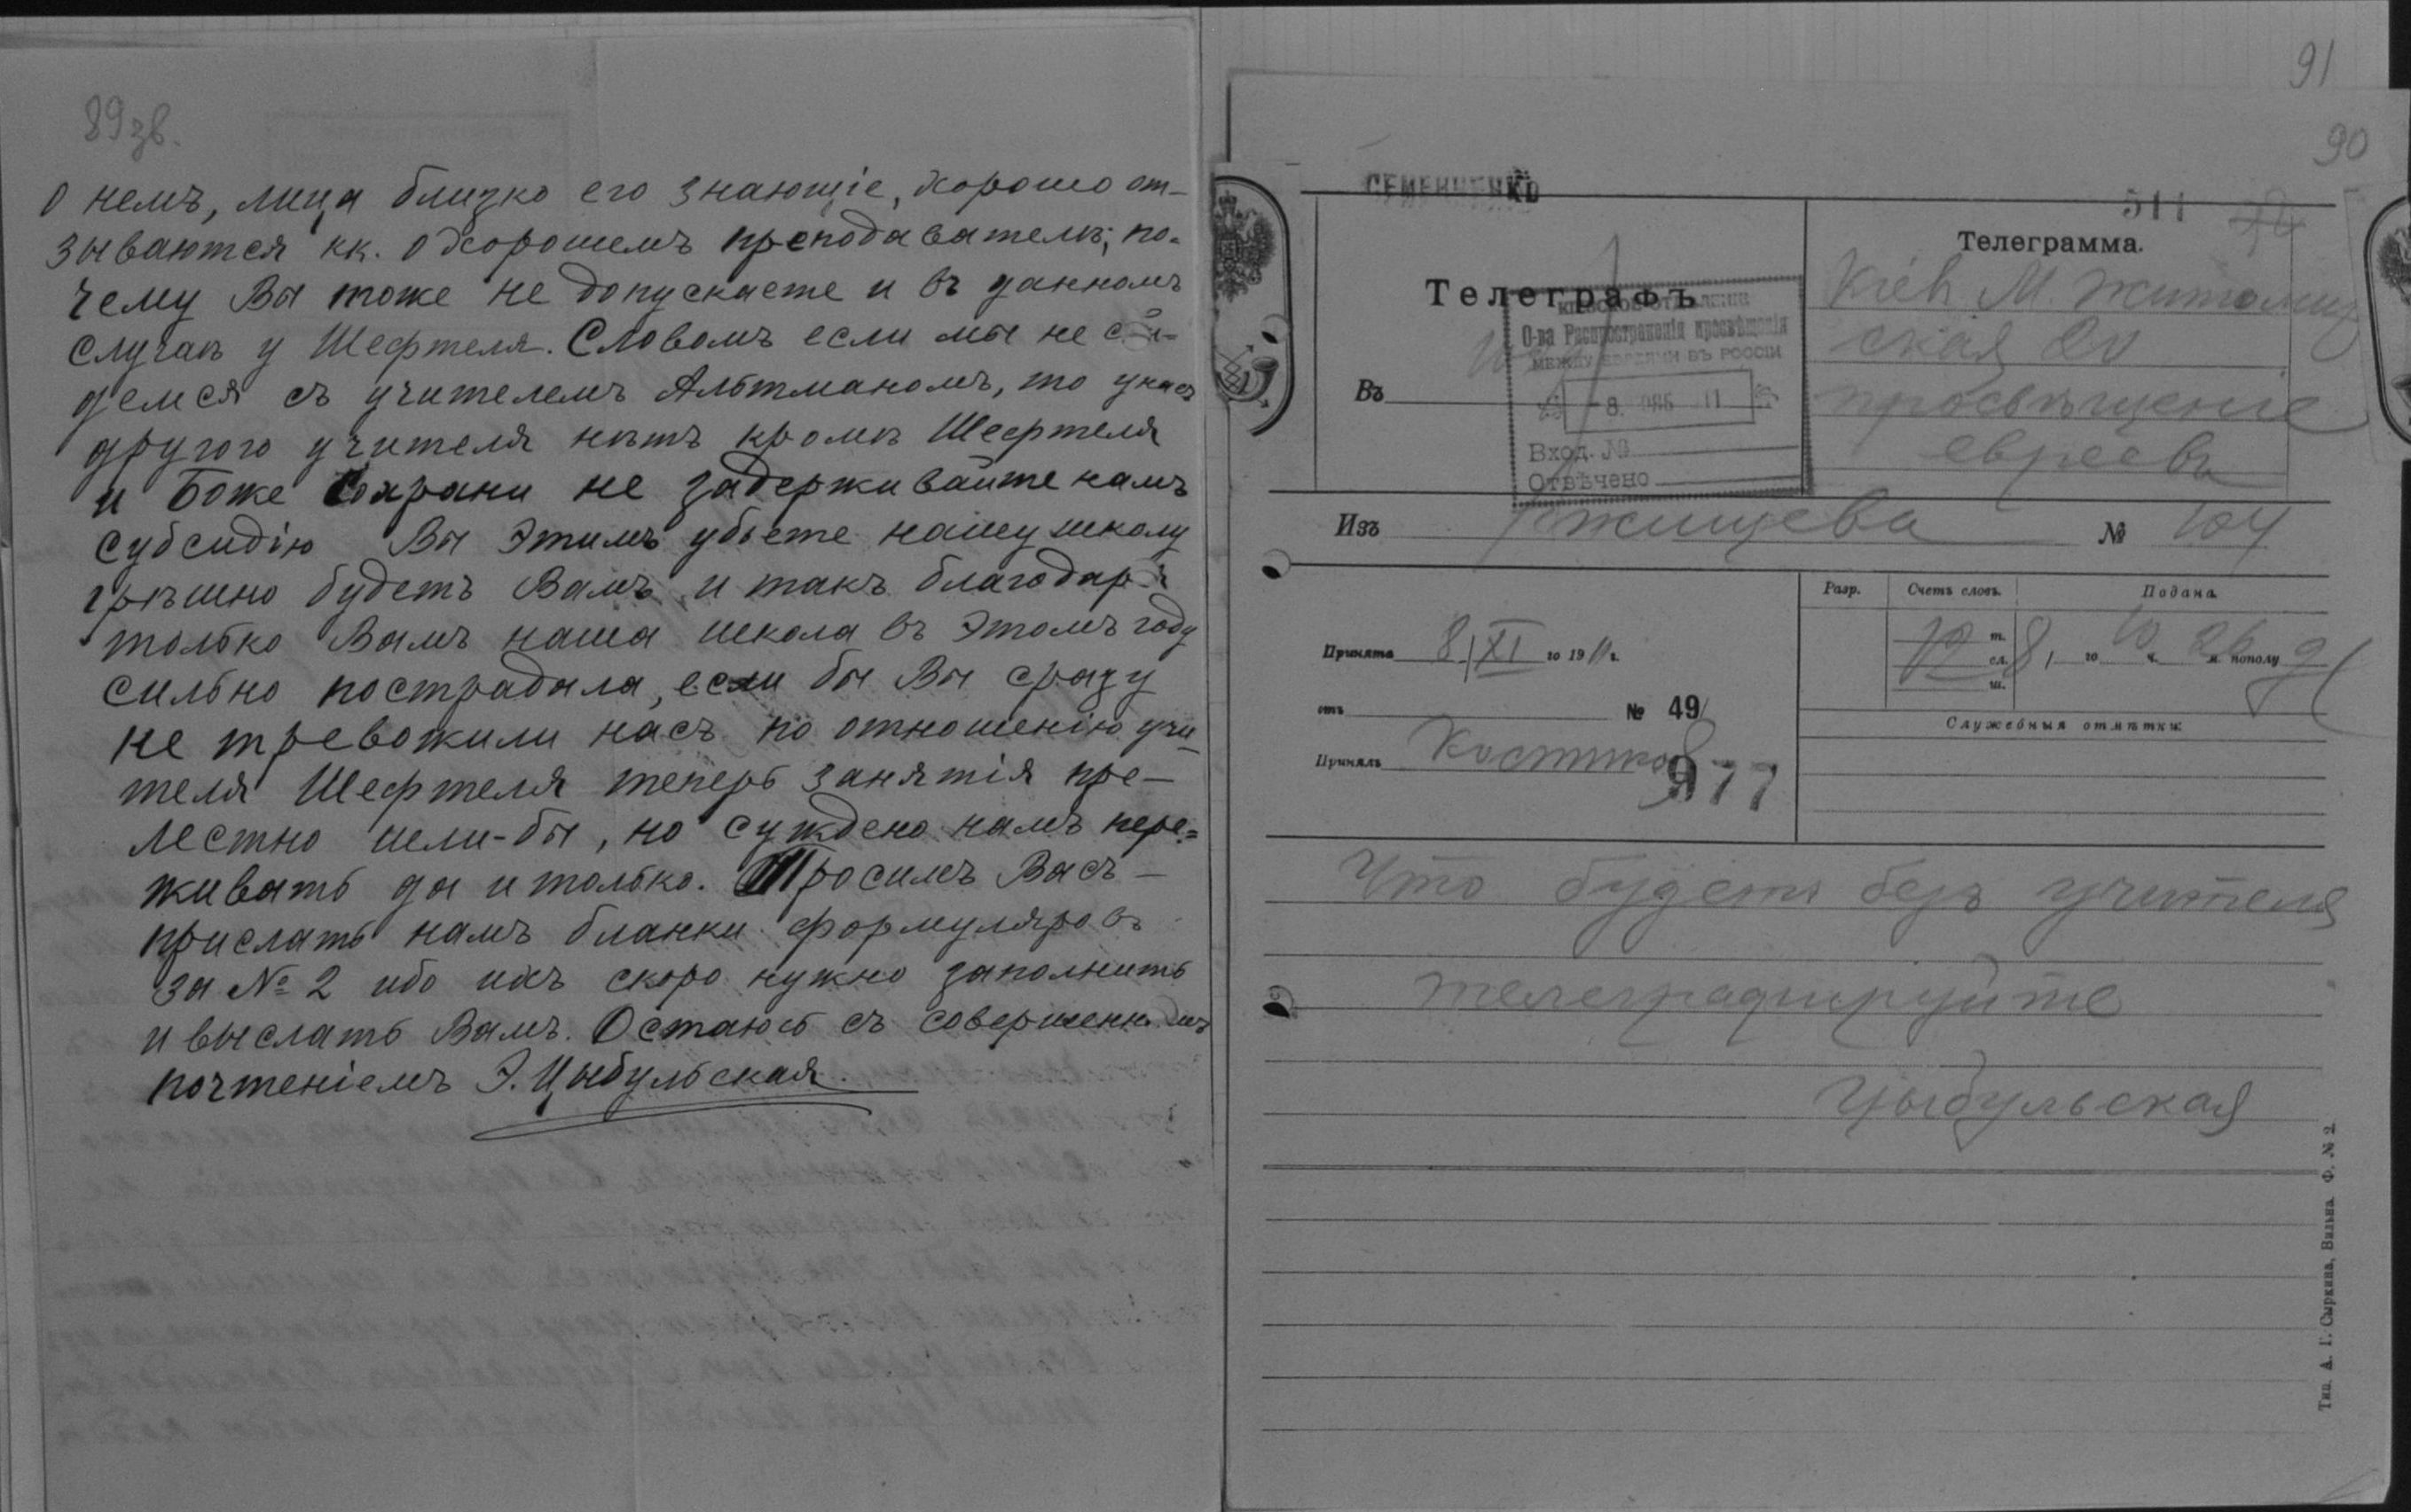 89зв.
о немъ, лица близко его знающіе, хорошо от-
зываются кк. о хорошемъ преподавателѣ; по-
чему Вы тоже не допускаете и въ данномъ
случаѣ у Шефтеля. Словомъ если мы не сой-
демся съ учителемъ Альтманомъ, то у насъ
другого учителя нѣтъ кромѣ Шефтеля
и Боже Сохрани не задерживайте намъ
субсидію Вы этимъ убьете нашу школу
грѣшно будетъ Вамъ, и такъ благодаря
только Вамъ наша школа въ этомъ году
сильно пострадала, если бы Вы сразу
не тревожили насъ по отношенію учи-
теля Шефтеля теперь занятія пре-
лестно шли-бы, но суждено намъ пере=
живать да и только. Просимъ Васъ -
прислать намъ бланки формуляровъ
за № 2 ибо ихъ скоро нужно заполнить
и выслать Вамъ. Остаюсь съ совершеннымъ
почтеніемъ Э. Цыбульская.
91
90
СЕМЕНЧЕНКО
511
Телеграфъ
Въ
О-ва Распространенія просвѣщенія
МЕЖДУ ЕВРЕЯМИ ВЪ РОССІИ
-8.
Вход. №
Отвѣчено
Телеграмма.
Кіевъ М. Житомир
ская 20
просвѣщеніе
евреевъ
Изъ Ржищева № 104
Принята 8/XI го 1911 г.
отъ № 49
Принялъ
977
Разр.
Счетъ словъ.
Подана
т.
сл.
ш.
8, го 10 ч. м. пополу
Служебныя отмѣтки:
Что будетъ безъ учителя
телеграфируйте
Цыбульская
Тип. А. Г. Сыркина, Вильна. Ф. № 2.